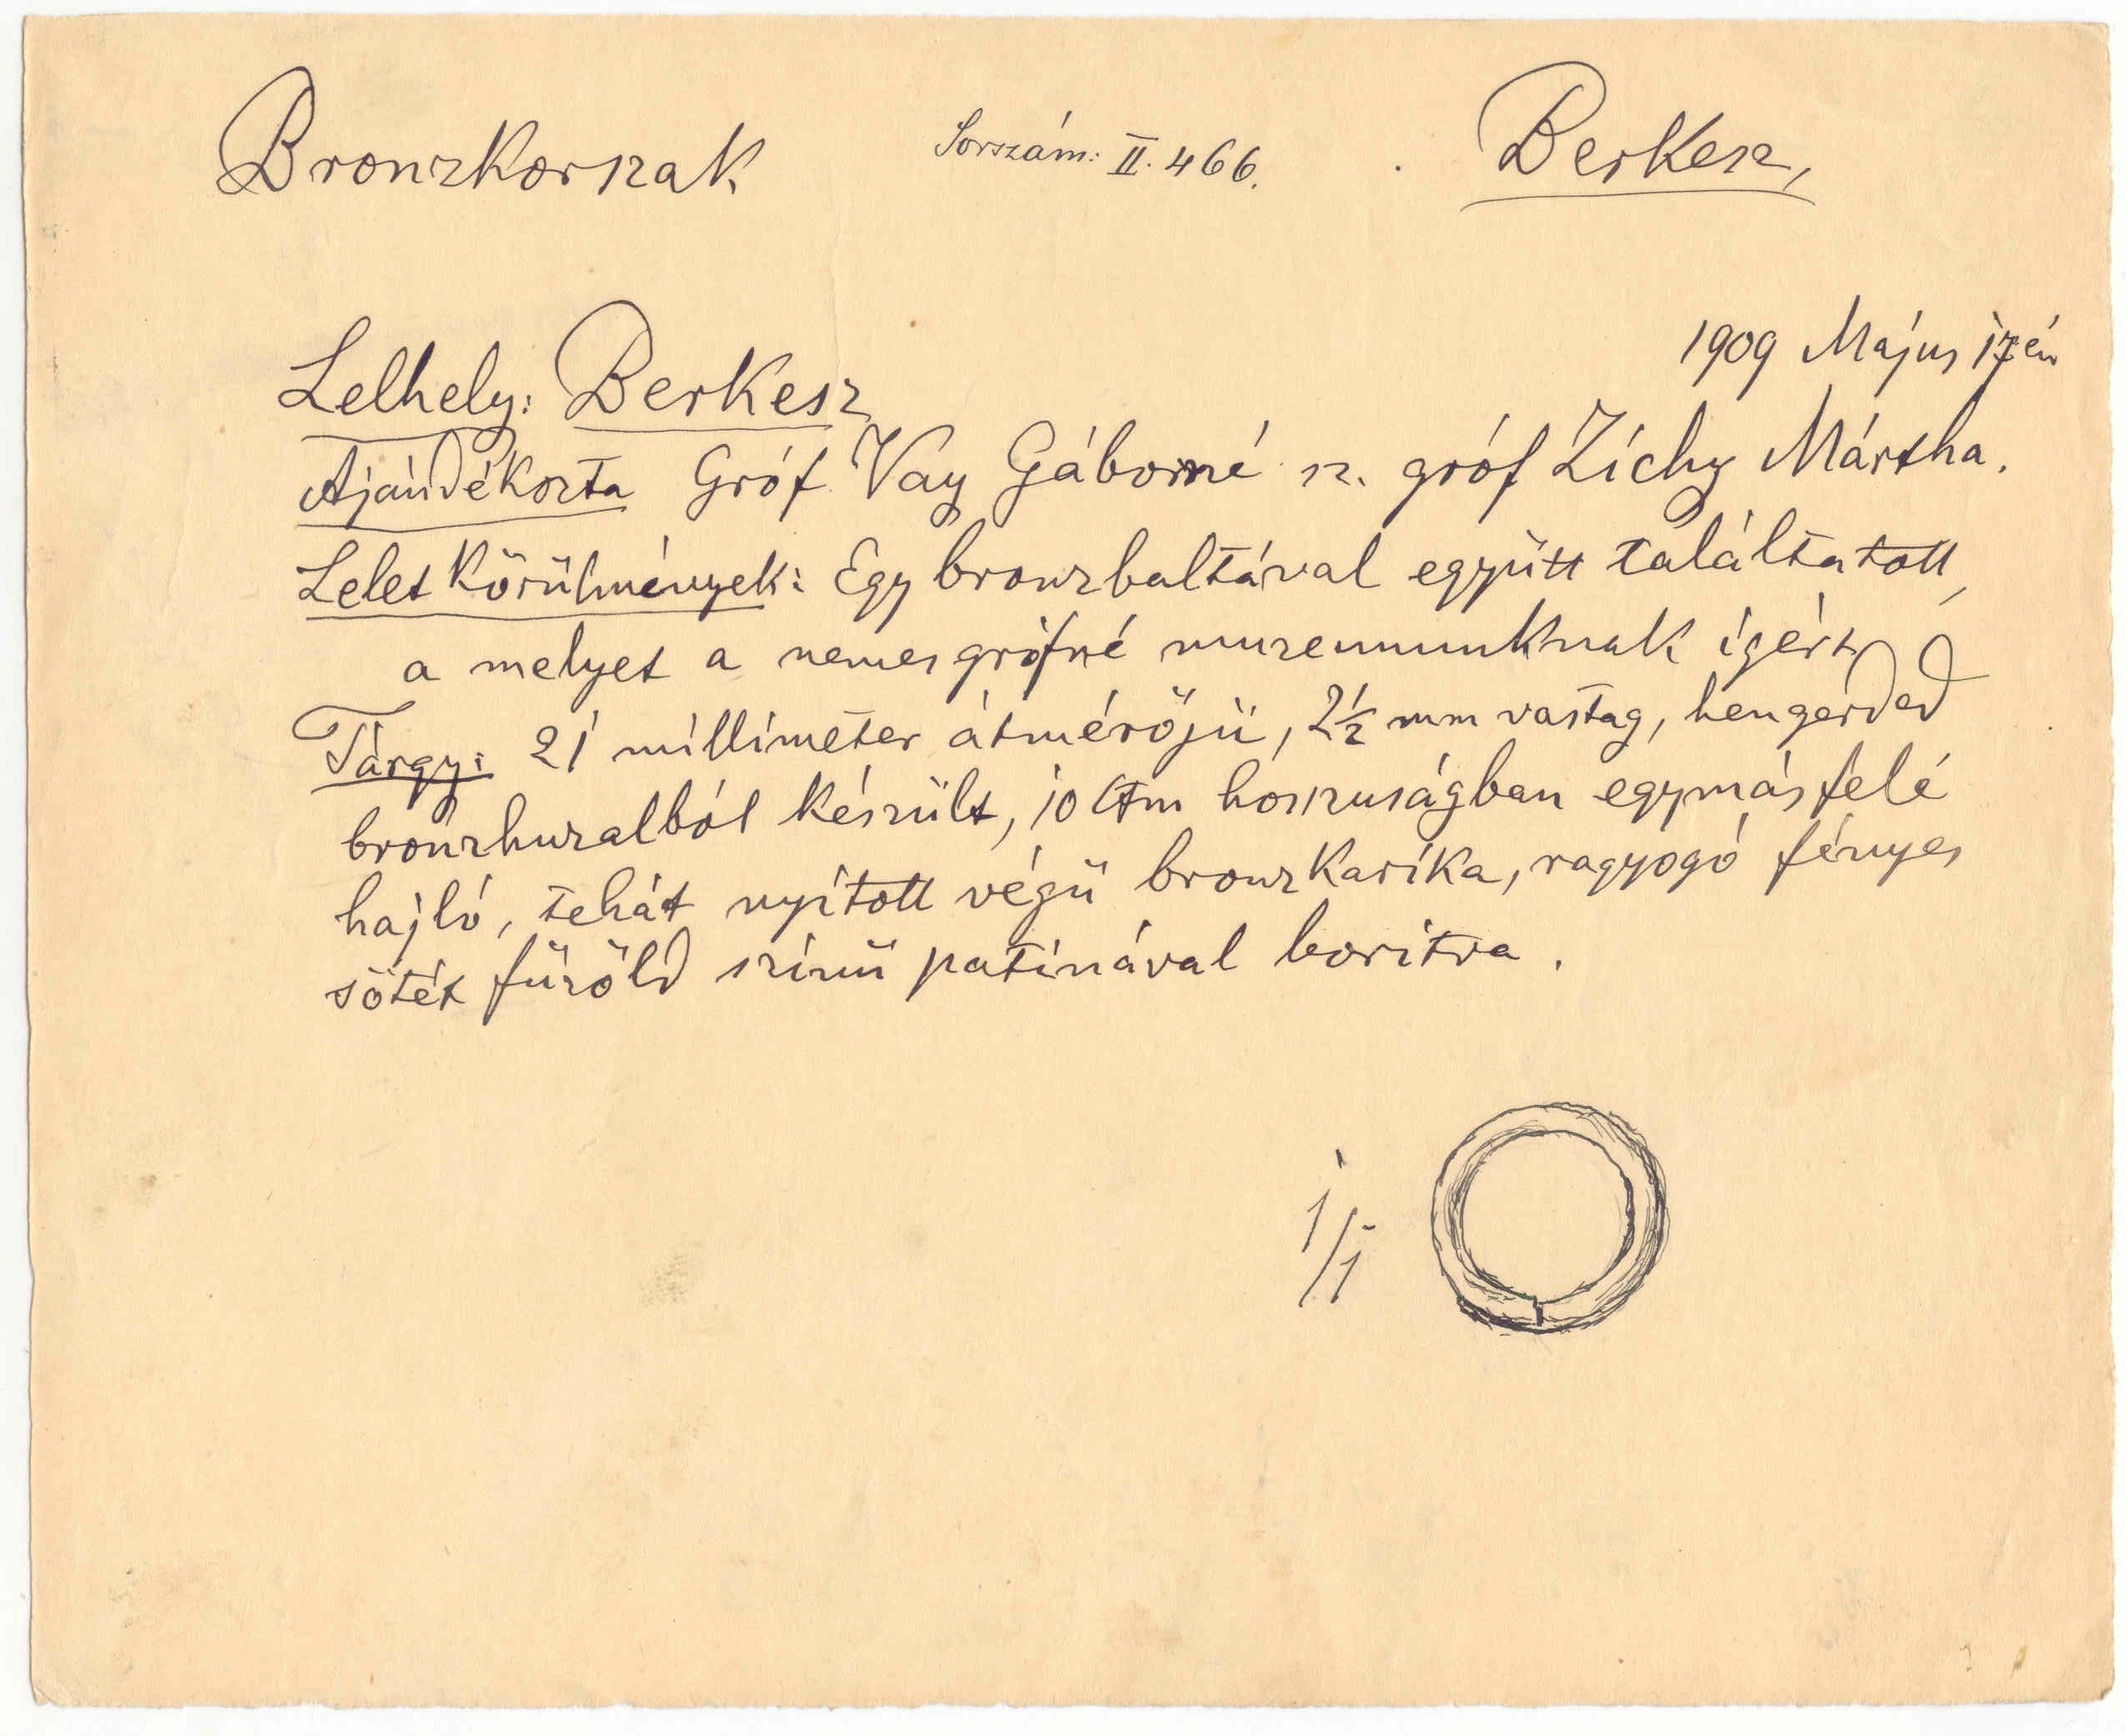 Bronzkorszak Sorszám: II. 466. Berkesz,
1909 Május 17én
Lelhely: Berkesz
Ajándékozta Gróf Vay Gáborné sz. gróf Zichy Mártha.
Lelet Körülmények: Egy bronzbaltával együtt találtatott,
a melyet a nemes grófné muzeumunknak igért
Tárgy: 21 milliméter átmérőjü, 2½ mm vastag, hengerded
bronzhuzalból készült, 10 Ctm hosszuságban egymás felé
hajló, tehát nyitott végü bronzkarika, ragyogó fényes
sötét füzöld szinü patinával boritva.
1/1